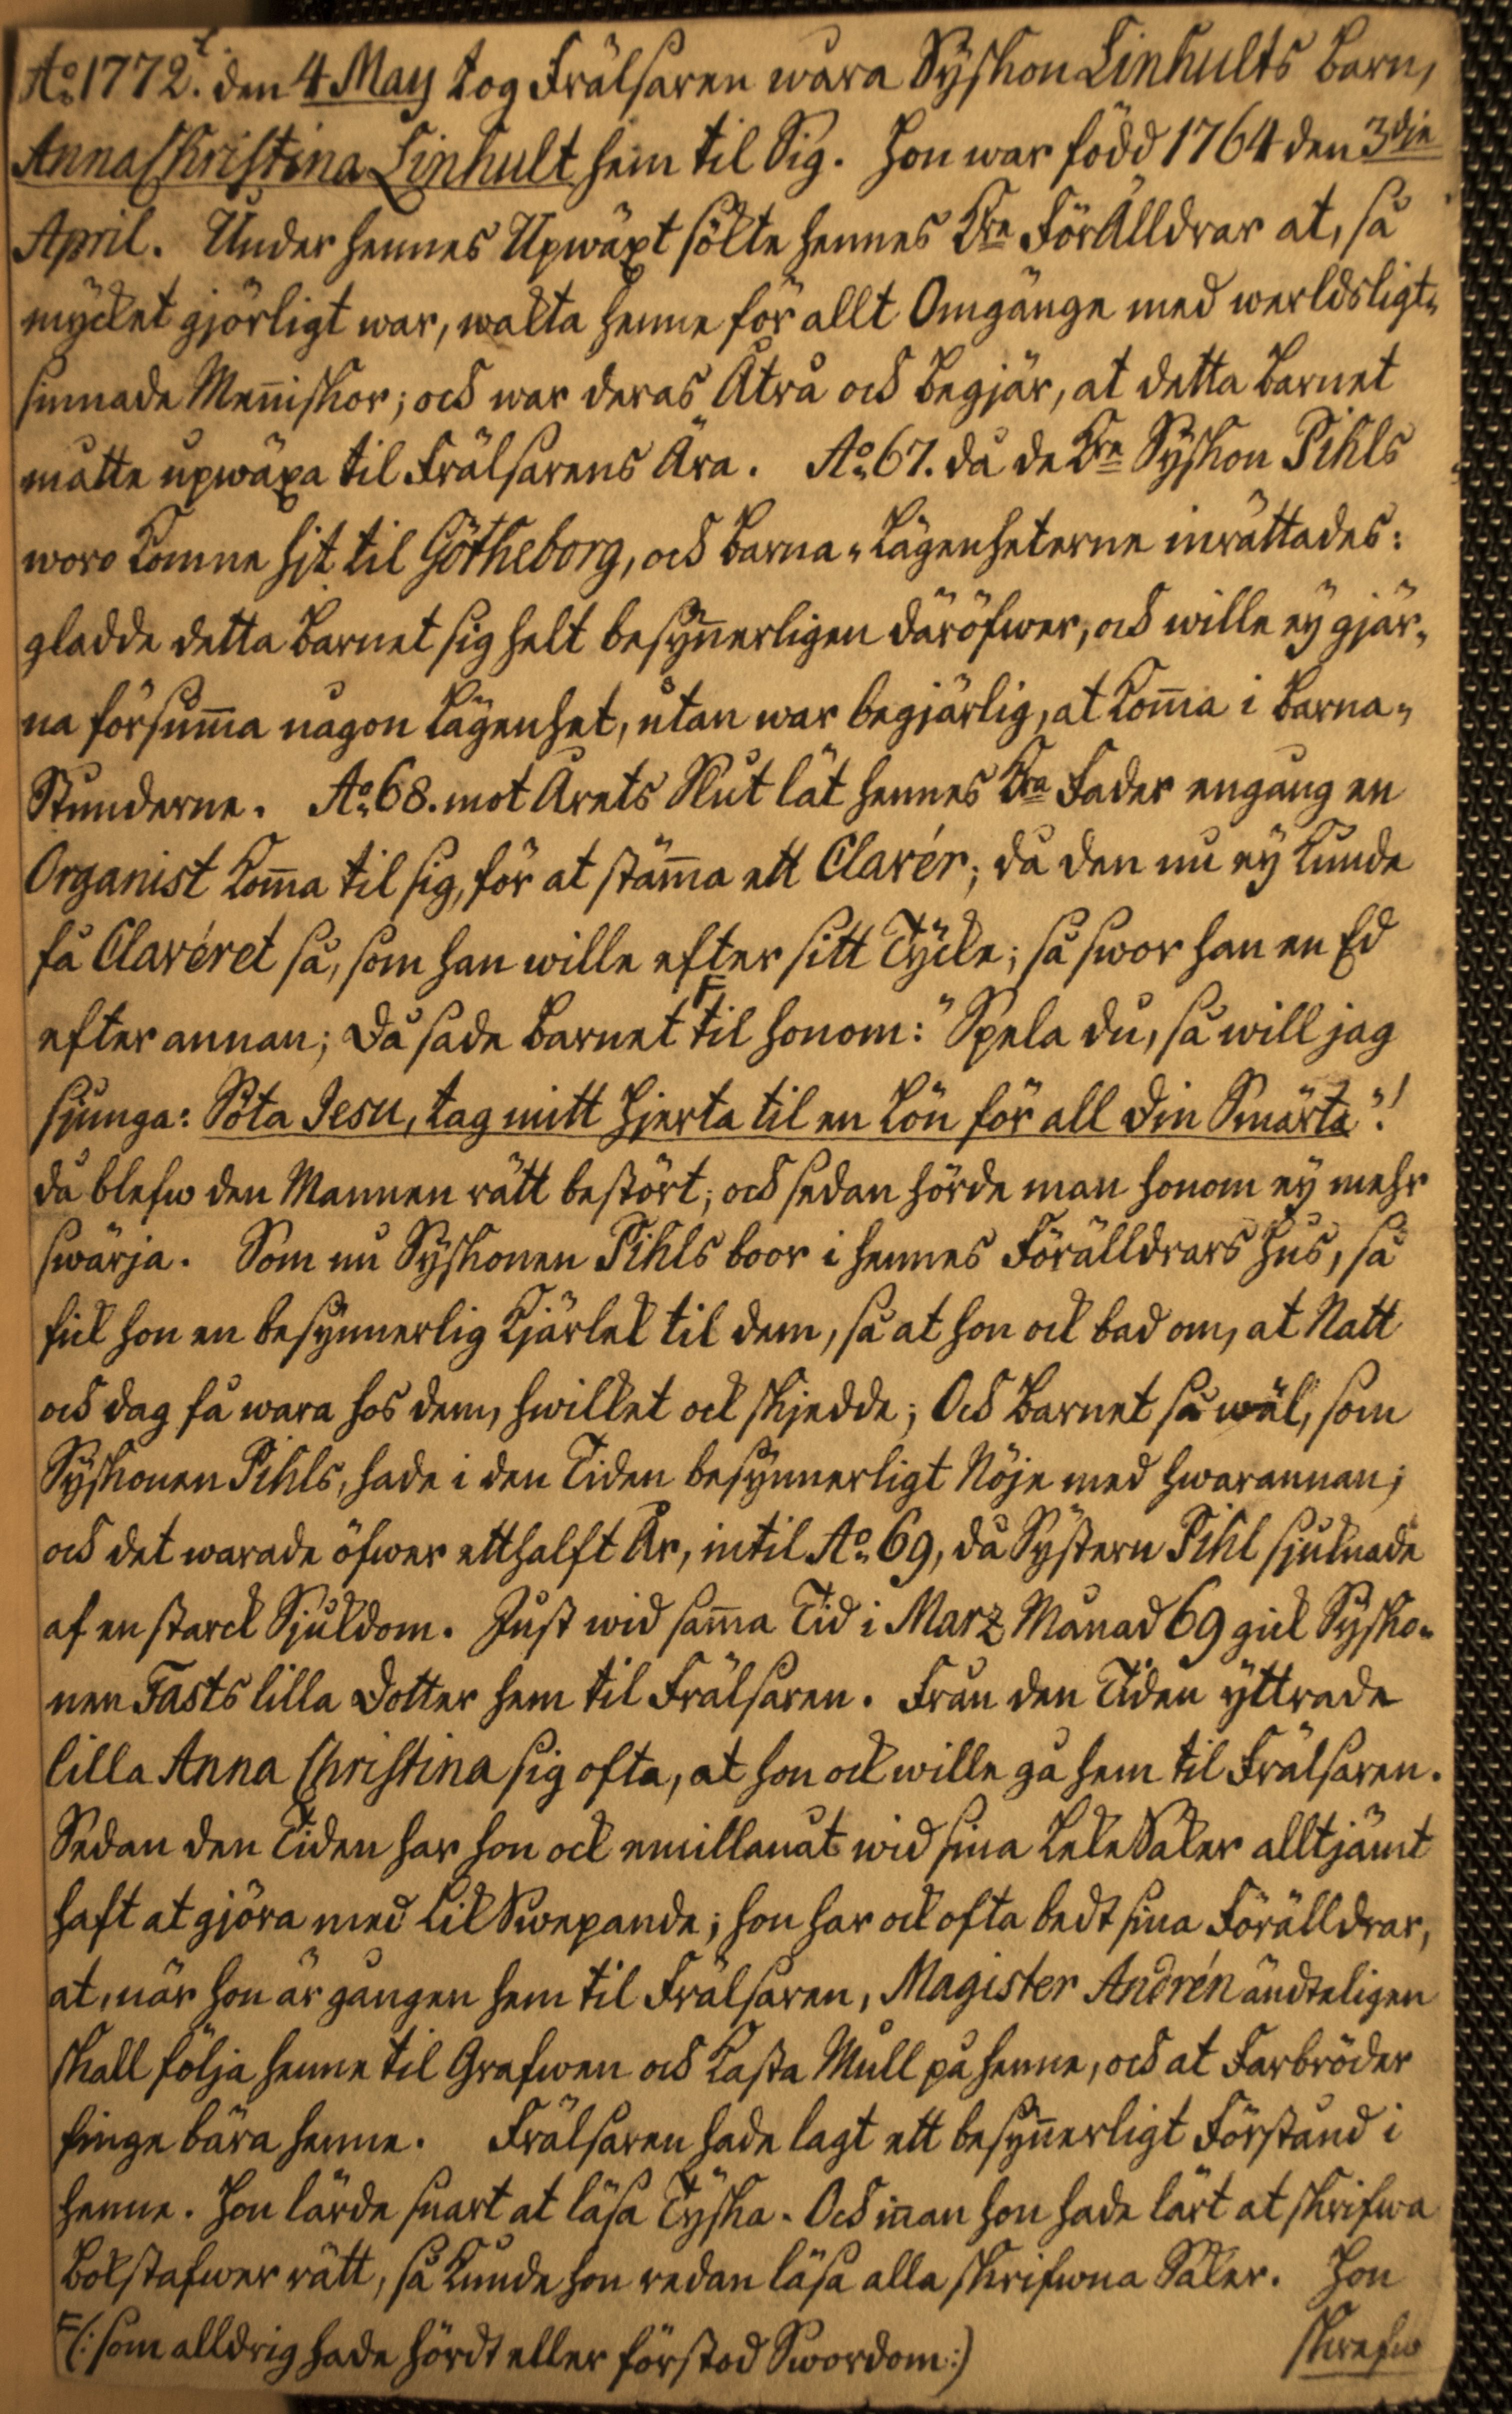 Ao. 1772. den 4 May tog Frälsaren wåra Syskon Linhults Barn,
Anna Christina Linhult hem til Sig. Hon war född 1764 den 3die
April. Under hennes Upwäxt sökte hennes Kre FörÄlldrar at, så
mycket gjörligt war, wakta henne för allt Omgänge med werldsligt„
sinnade Meñiskor; och war deras Åtrå och Begjär, at detta Barnet
måtte upwäxa til Frälsarens Ära. Ao. 67. då de Kre Syskon Pihls
woro komne hit til Götheborg, och Barna„Lägenheterne inrättades:
gladde detta Barnet sig helt besyñerligen däröfwer, och wille ey gjär„
na försum̃a någon Lägenhet, utan war begjärlig, at kom̃a i Barna„
Stunderne. Ao. 68. mot Årets Slut lät hennes Kre Fader engång en
Organist kom̃a til sig, för at stäm̃a ett Clavér; då den nu ey kunde
få Clavéret så, som han wille efter sitt Tycke; så swor han en Ed
efter annan; Då sade Barnet F til honom: "Spela du, så will jag
sjunga: Söta Jesu, tag mitt Hjerta til en Lön för all Din Smärta"!
då blefw den Mannen rätt bestört; och sedan hörde man honom ey mehr
swärja. Som nu Syskonen Pihls boor i hennes Förälldrars Hus, så
fick hon en besynnerlig Kjärlek til dem, så at hon ock bad om, at Natt
och dag få wara hos dem, hwilket ock skjedde; Och Barnet så wäl, som
Syskonen Pihls, hade i den Tiden besynnerligt Nöje med hwarannan;
och det warade öfwer etthalft År, intil Ao. 69, då Systern Pihl sjuknade
af en starck Sjukdom. Just wid sam̃a Tid i Marz Månad 69 gick Sysko„
nen Fasts lilla Dotter hem til Frälsaren. Från den Tiden yttrade
lilla Anna Christina sig ofta, at hon ock wille gå hem til Frälsaren.
Sedan den Tiden har hon ock emillanåt wid sina LekeSaker alltjämt
haft at gjöra med LikSwepande; hon har ock ofta bedt sina Förälldrar,
at, när hon är gången hem til Frälsaren, Magister Andrén ändteligen
skall följa henne til Grafwen och kasta Mull på henne, och at Farbröder
finge bära henne. Frälsaren hade lagt ett besyñerligt Förstånd i
henne. Hon lärde snart at läsa Tyska. Och iñan hon hade lärt at skrifwa
Bokstafwer rätt, så kunde hon redan läsa alla skrifwna Saker. Hon
F (: som alldrig hade hördt eller förstod Swordom :)
skrefw